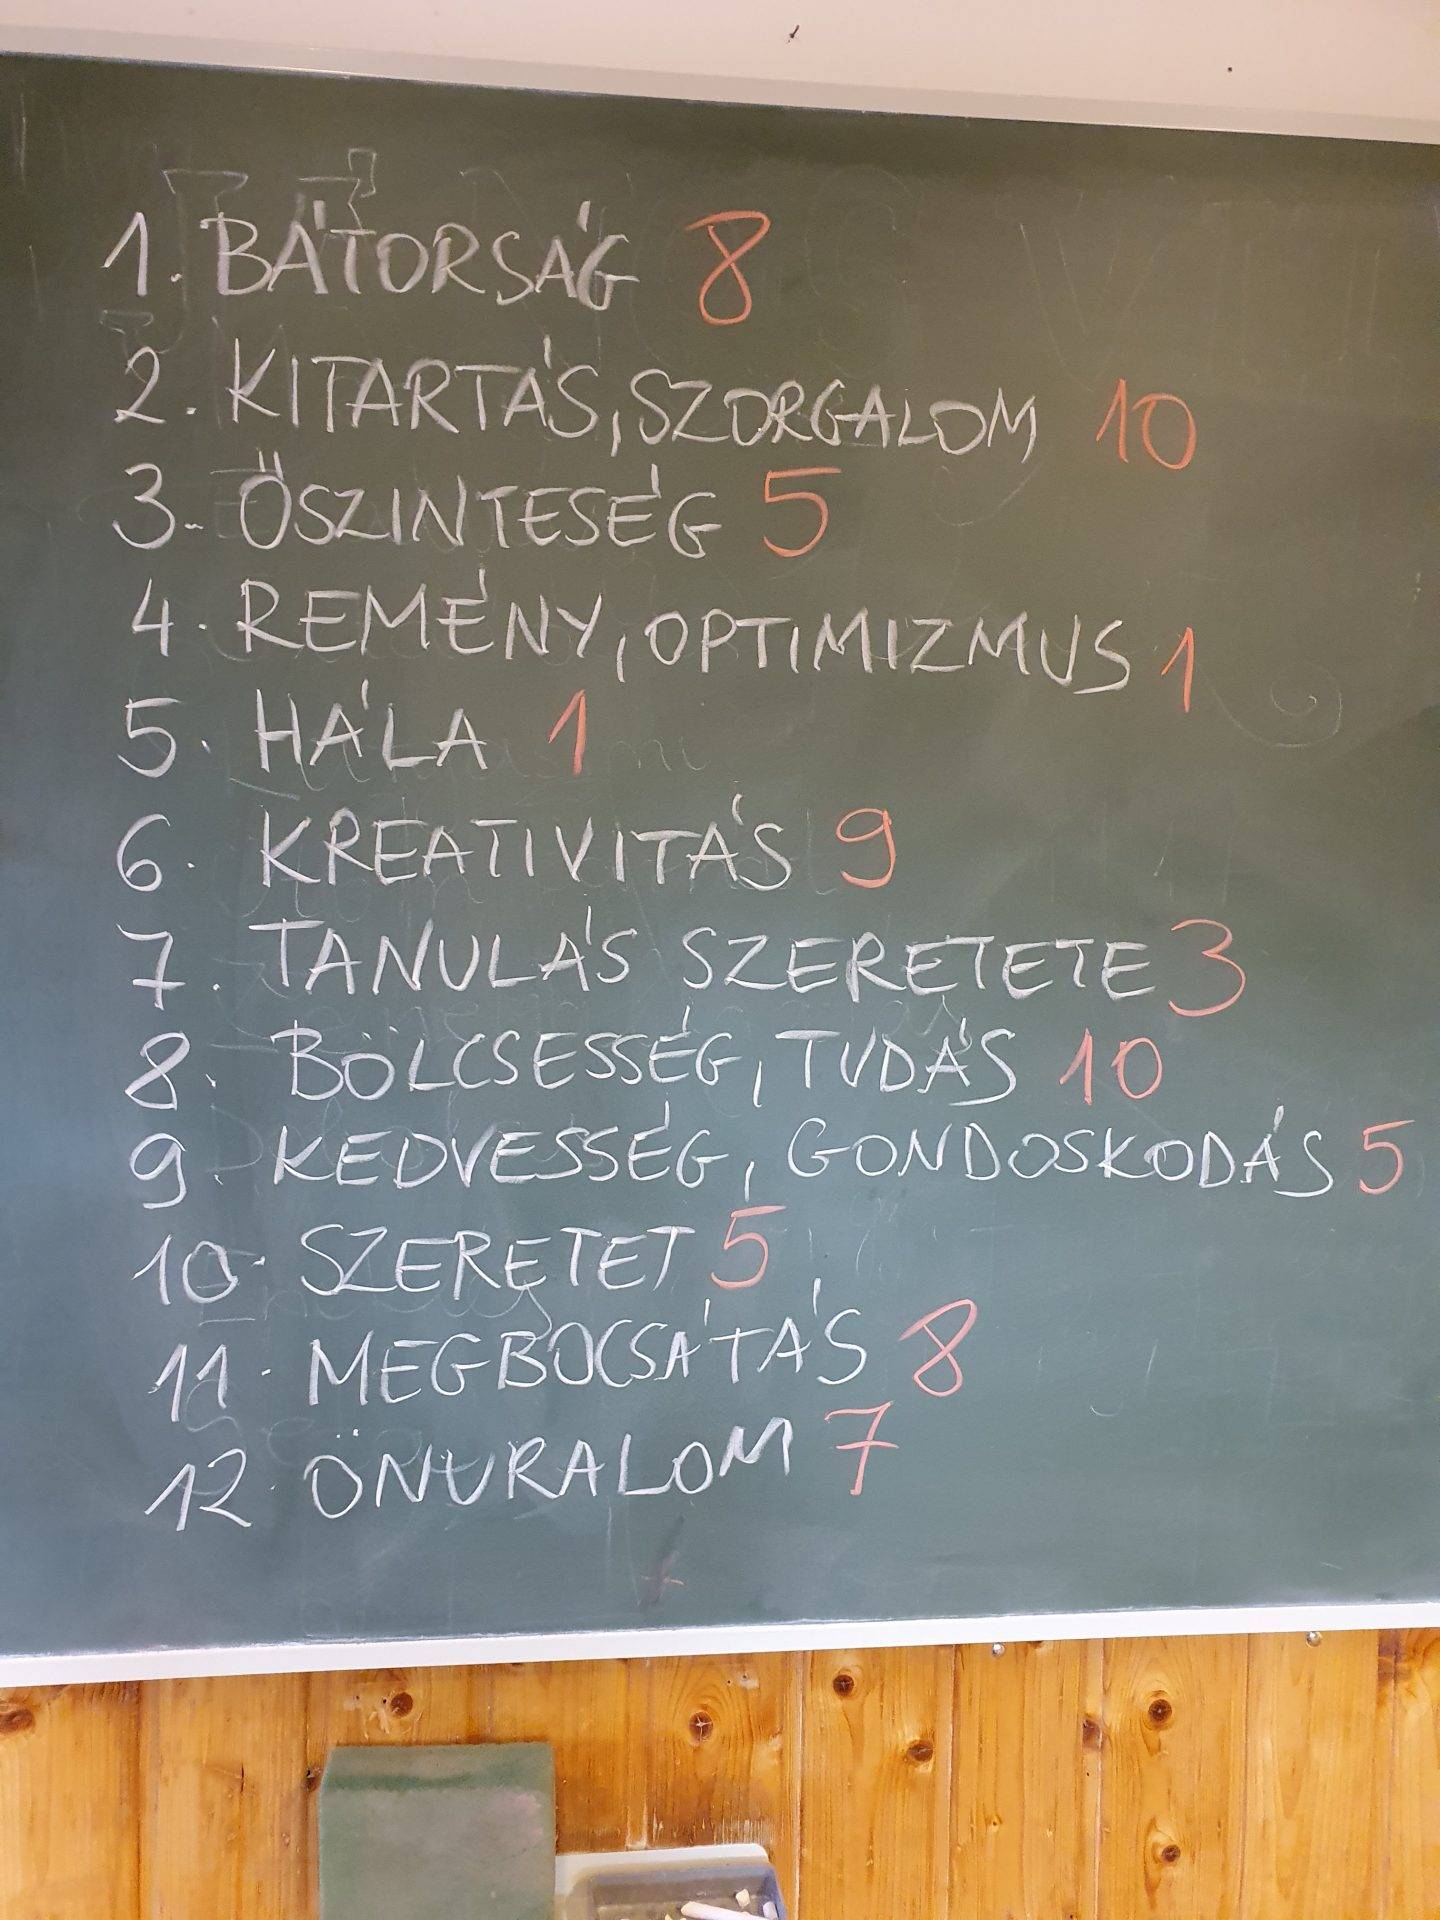 1. BÁTORSÁG 8
2. KITARTÁS, SZORGALOM 10
3. ŐSZINTESÉG 5
4. REMÉNY, OPTIMIZMUS 1
5. HÁLA 1
6. KREATIVITÁS 9
7. TANULÁS SZERETETE 3
8. BÖLCSESSÉG, TUDÁS 10
9. KEDVESSÉG, GONDOSKODÁS 5
10. SZERETET 5
11. MEGBOCSÁTÁS 8
12. ÖNURALOM 7